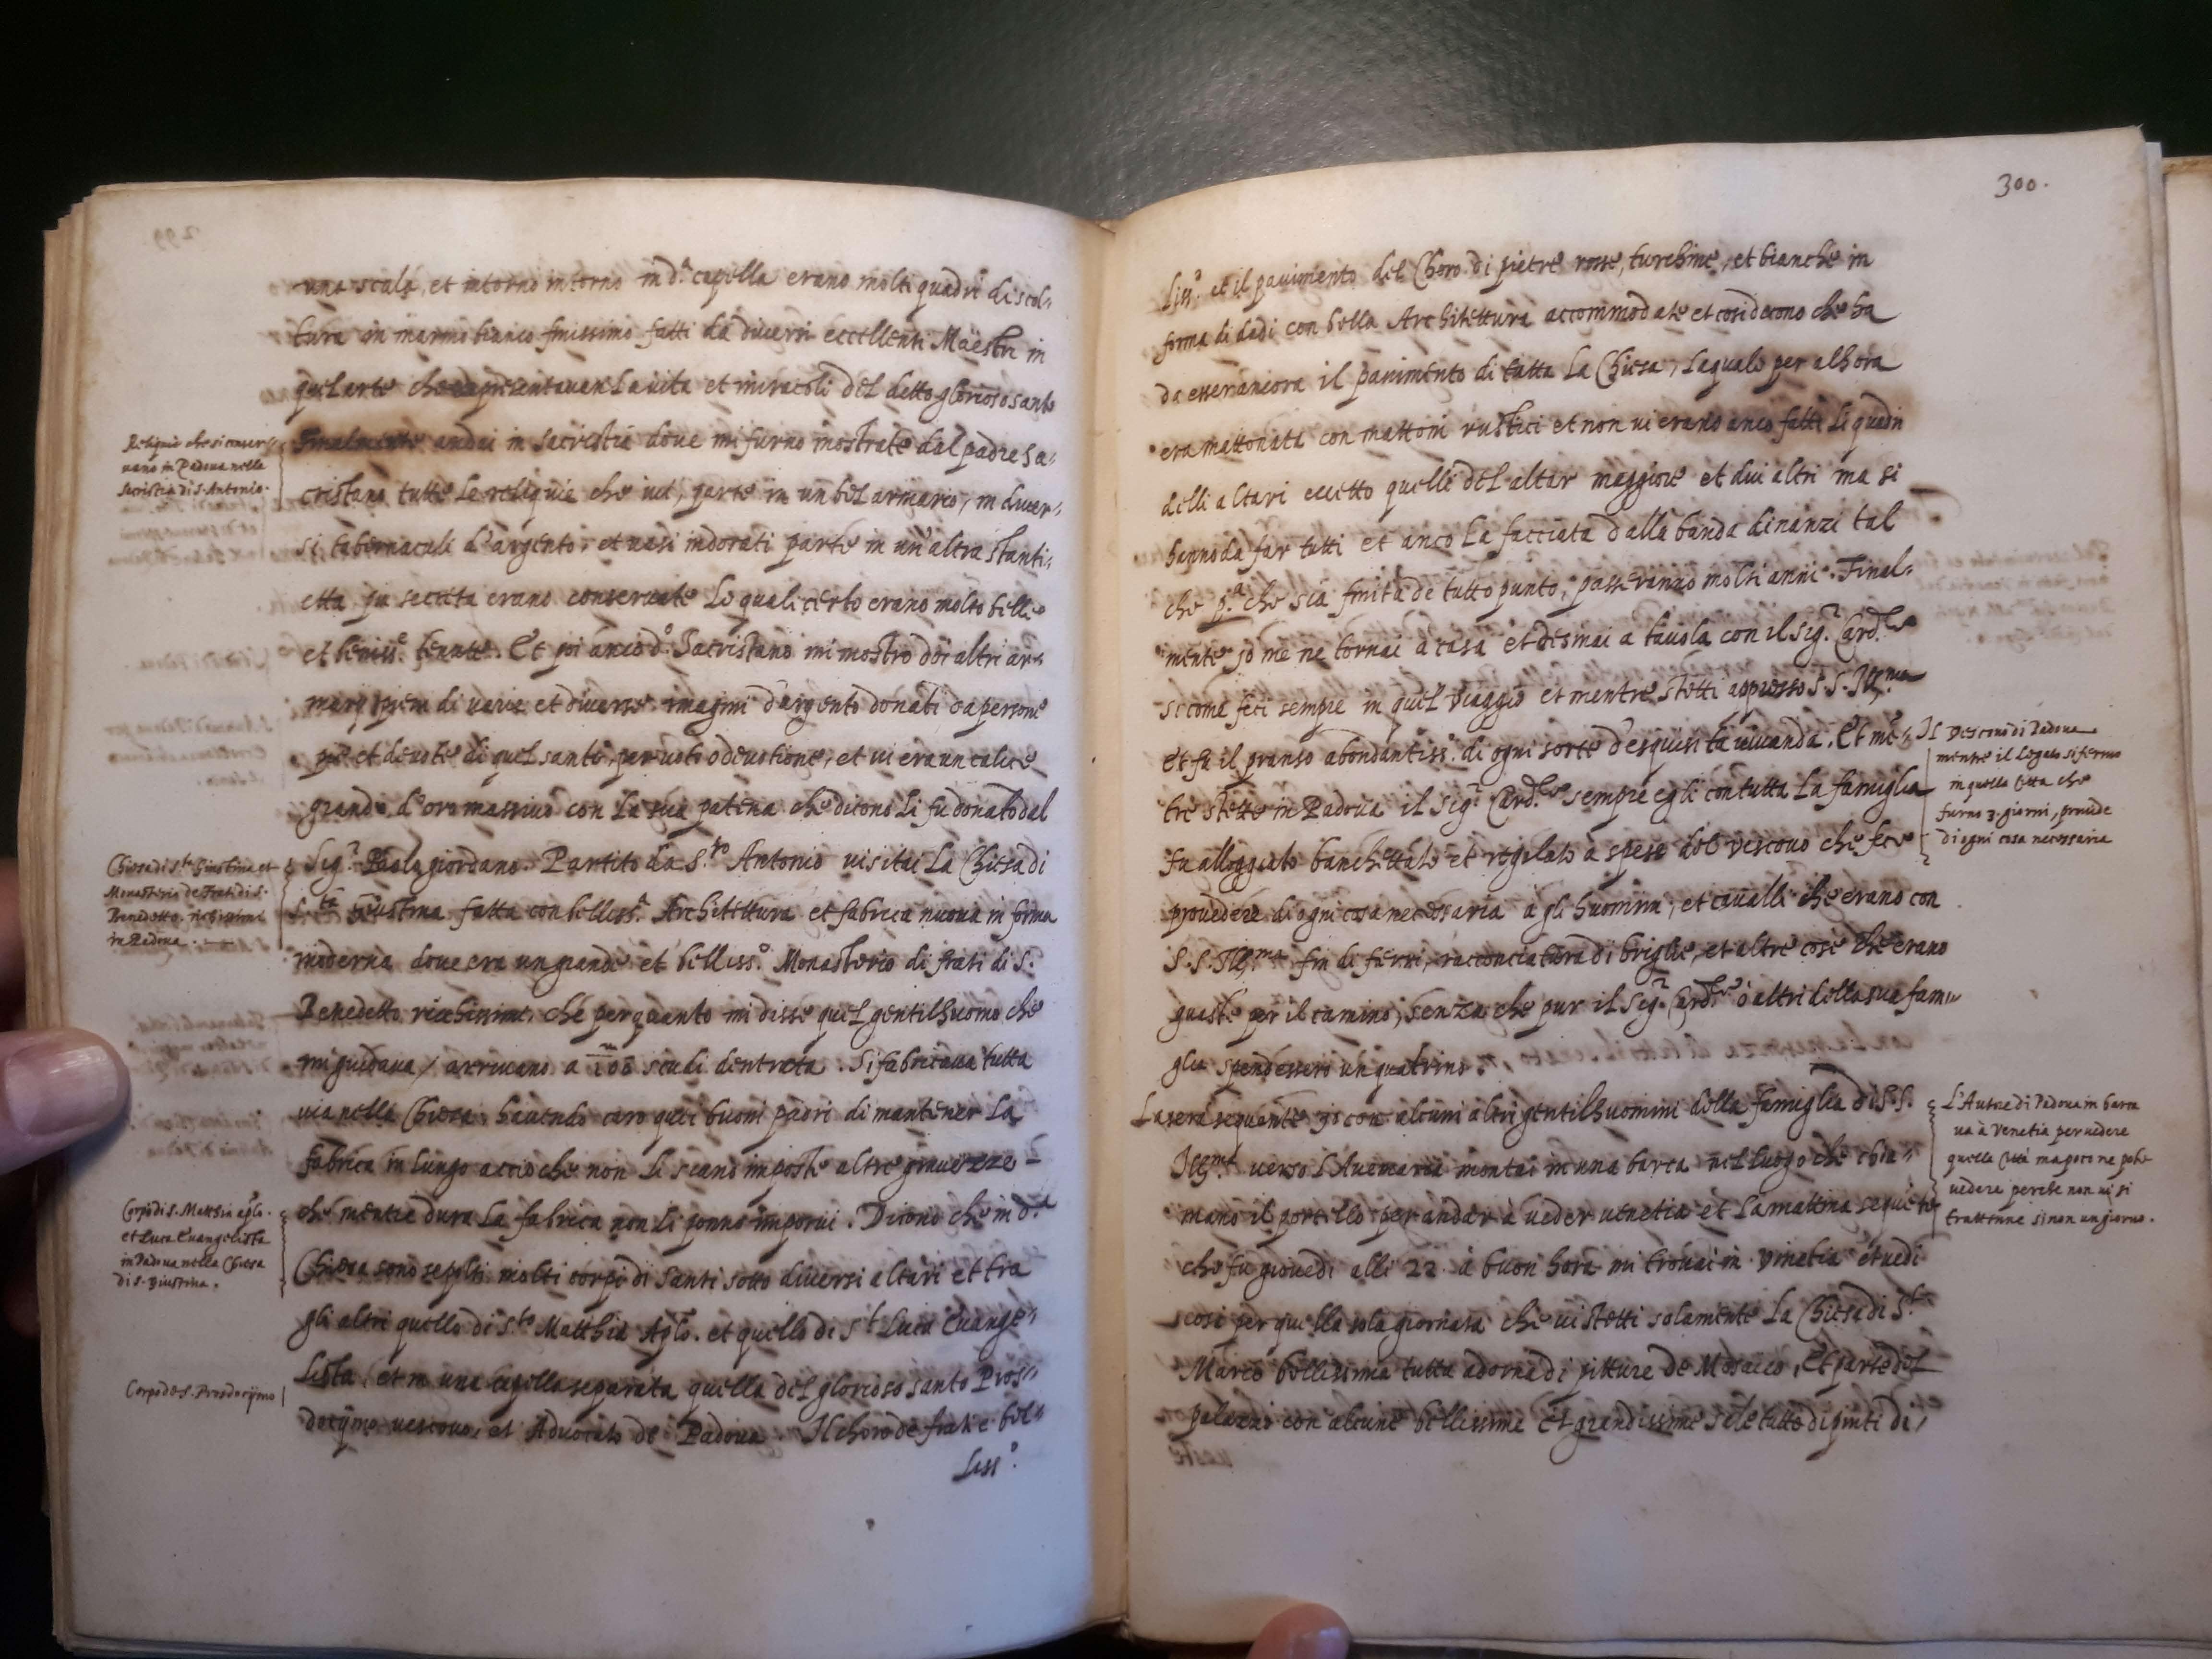 una scala, et intorno intorno in d.ª capella erano molti quadri di scol-
tura in marmo bianco finissimo fatti da diversi eccellenti Maestri in
quel arte che rapresentavan la vita et miracoli del detto glorioso santo
Reliquie che si conser-
vano in Padova nella
sacristia di S. Antonio.
Finalmente andai in sacristia dove mi furno mostrate dal padre sa-
cristano tutte le reliquie che ivi, parte in un bel armario, in diver-
si tabernaculi d'argento, et vasi indorati parte in un'altra stanti-
etta più secreta erano conservate le quali certo erano molto belle
et beniss.º tenute. Et poi anco d.º Sacristano mi mostrò doi altri ar-
marij pieni di varie et diverse imagini d'argento donati da persone
pie et devote di quel santo, per voto o devotione, et vi era un calice
grande d'oro massivo con la sua patena che dicono li fu donato dal
Chiesa di S.ta Giustina et
Monasterio de frati di S.
Benedetto richissimi
in Padova.
Sig.r Paolo giordano. Partito da S.to Antonio visitai la Chiesa di
S.ta Giustina fatta con belliss.ª Architettura et fabrica nuova in forma
moderna dove era un grande et belliss.º Monasterio di frati di S.
Benedetto richissimi, che per quanto mi disse quel gentilhuomo che
mi guidava, arrivano a 100 m scudi d'entrata. Si fabricava tutta
via nella Chiesa, havendo caro quei buoni padri di mantener la
fabrica in lungo acciò che non li siano imposte altre gravezze
Corpo di S. Matthia aplo.
et Luca Evangelista
in Padova nella Chiesa
di S. Giustina.
che mentre dura la fabrica non li ponno imporvi. Dicono che in d.ª
Chiesa sono sepolti molti corpi di santi sotto diversi altari et tra
gli altri quello di S.to Matthia Aplo. et quello di S.t Luca Evange-
lista, et in una capella separata quella del glorioso santo Pros-
Corpo de S. Prosdocijmo
docijmo vescovo, et Advocato de Padova. Il choro de frati è bel-
liss.º
300.
liss.º et il pavimento del Choro di pietre rosse, turchine, et bianche in
forma di dadi con bella Architettura accommodate et cosi dicono che ha
da esser ancora il pavimento di tutta la Chiesa, la quale per alhora
era mattonata con mattoni rustici et non vi erano anco fatti li quadri
delli altari eccetto quelli del altar maggiore et dui altri ma si
hanno da far tutti et anco la facciata dalla banda dinanzi tal
che p.ª che sia finita de tutto punto, passeranno molti anni. Final-
mente io me ne tornai a casa et disinai a tavola con il Sig.r Card.le
si come feci sempre in quel viaggio et mentre stetti appresso S. S. Ill.ma
et fu il pranso abondantiss.º di ogni sorte d'esquisita vivanda. Et men-
Il Vescovo di Padova
mentre il Legato si fermò
in quella Città che
furno 3. giorni, provede
di ogni cosa necessaria
tre stette in Padova il Sig.r Card.le sempre egli con tutta la famiglia
fu alloggiato banchettato et regalato a spese del vescovo che fece
provedere di ogni cosa necessaria a gli huomini, et cavalli che erano con
S. S. Ill.ma fin di ferri, racconciatura di briglie, et altre cose che erano
guaste per il camino, senza che pur il Sig.r Card.le ò altri della sua fami-
glia spendessero un quatrino.
L'Autre di Padova in barca
va à Venetia per vedere
quella Città ma poco ne potè
vedere perche non vi si
trattenne si non un giorno.
La sera sequente io con alcuni altri gentilhuomini della famiglia di S. S.
Ill.ma verso l'Avemaria montai in una barca nel luogo che chia-
mano il portello per andar à veder venetia et la mattina sequente
che fu giovedi alli 22 à buon hora mi trovai in Venetia et vedi
cosi per quella sola giornata che vi stetti solamente la Chiesa di S.t
Marco bellissima tutta adorna di pitture de Mosaico, Et parte del
palazzo con alcune bellissime et grandissime sale tutte dipinti di,